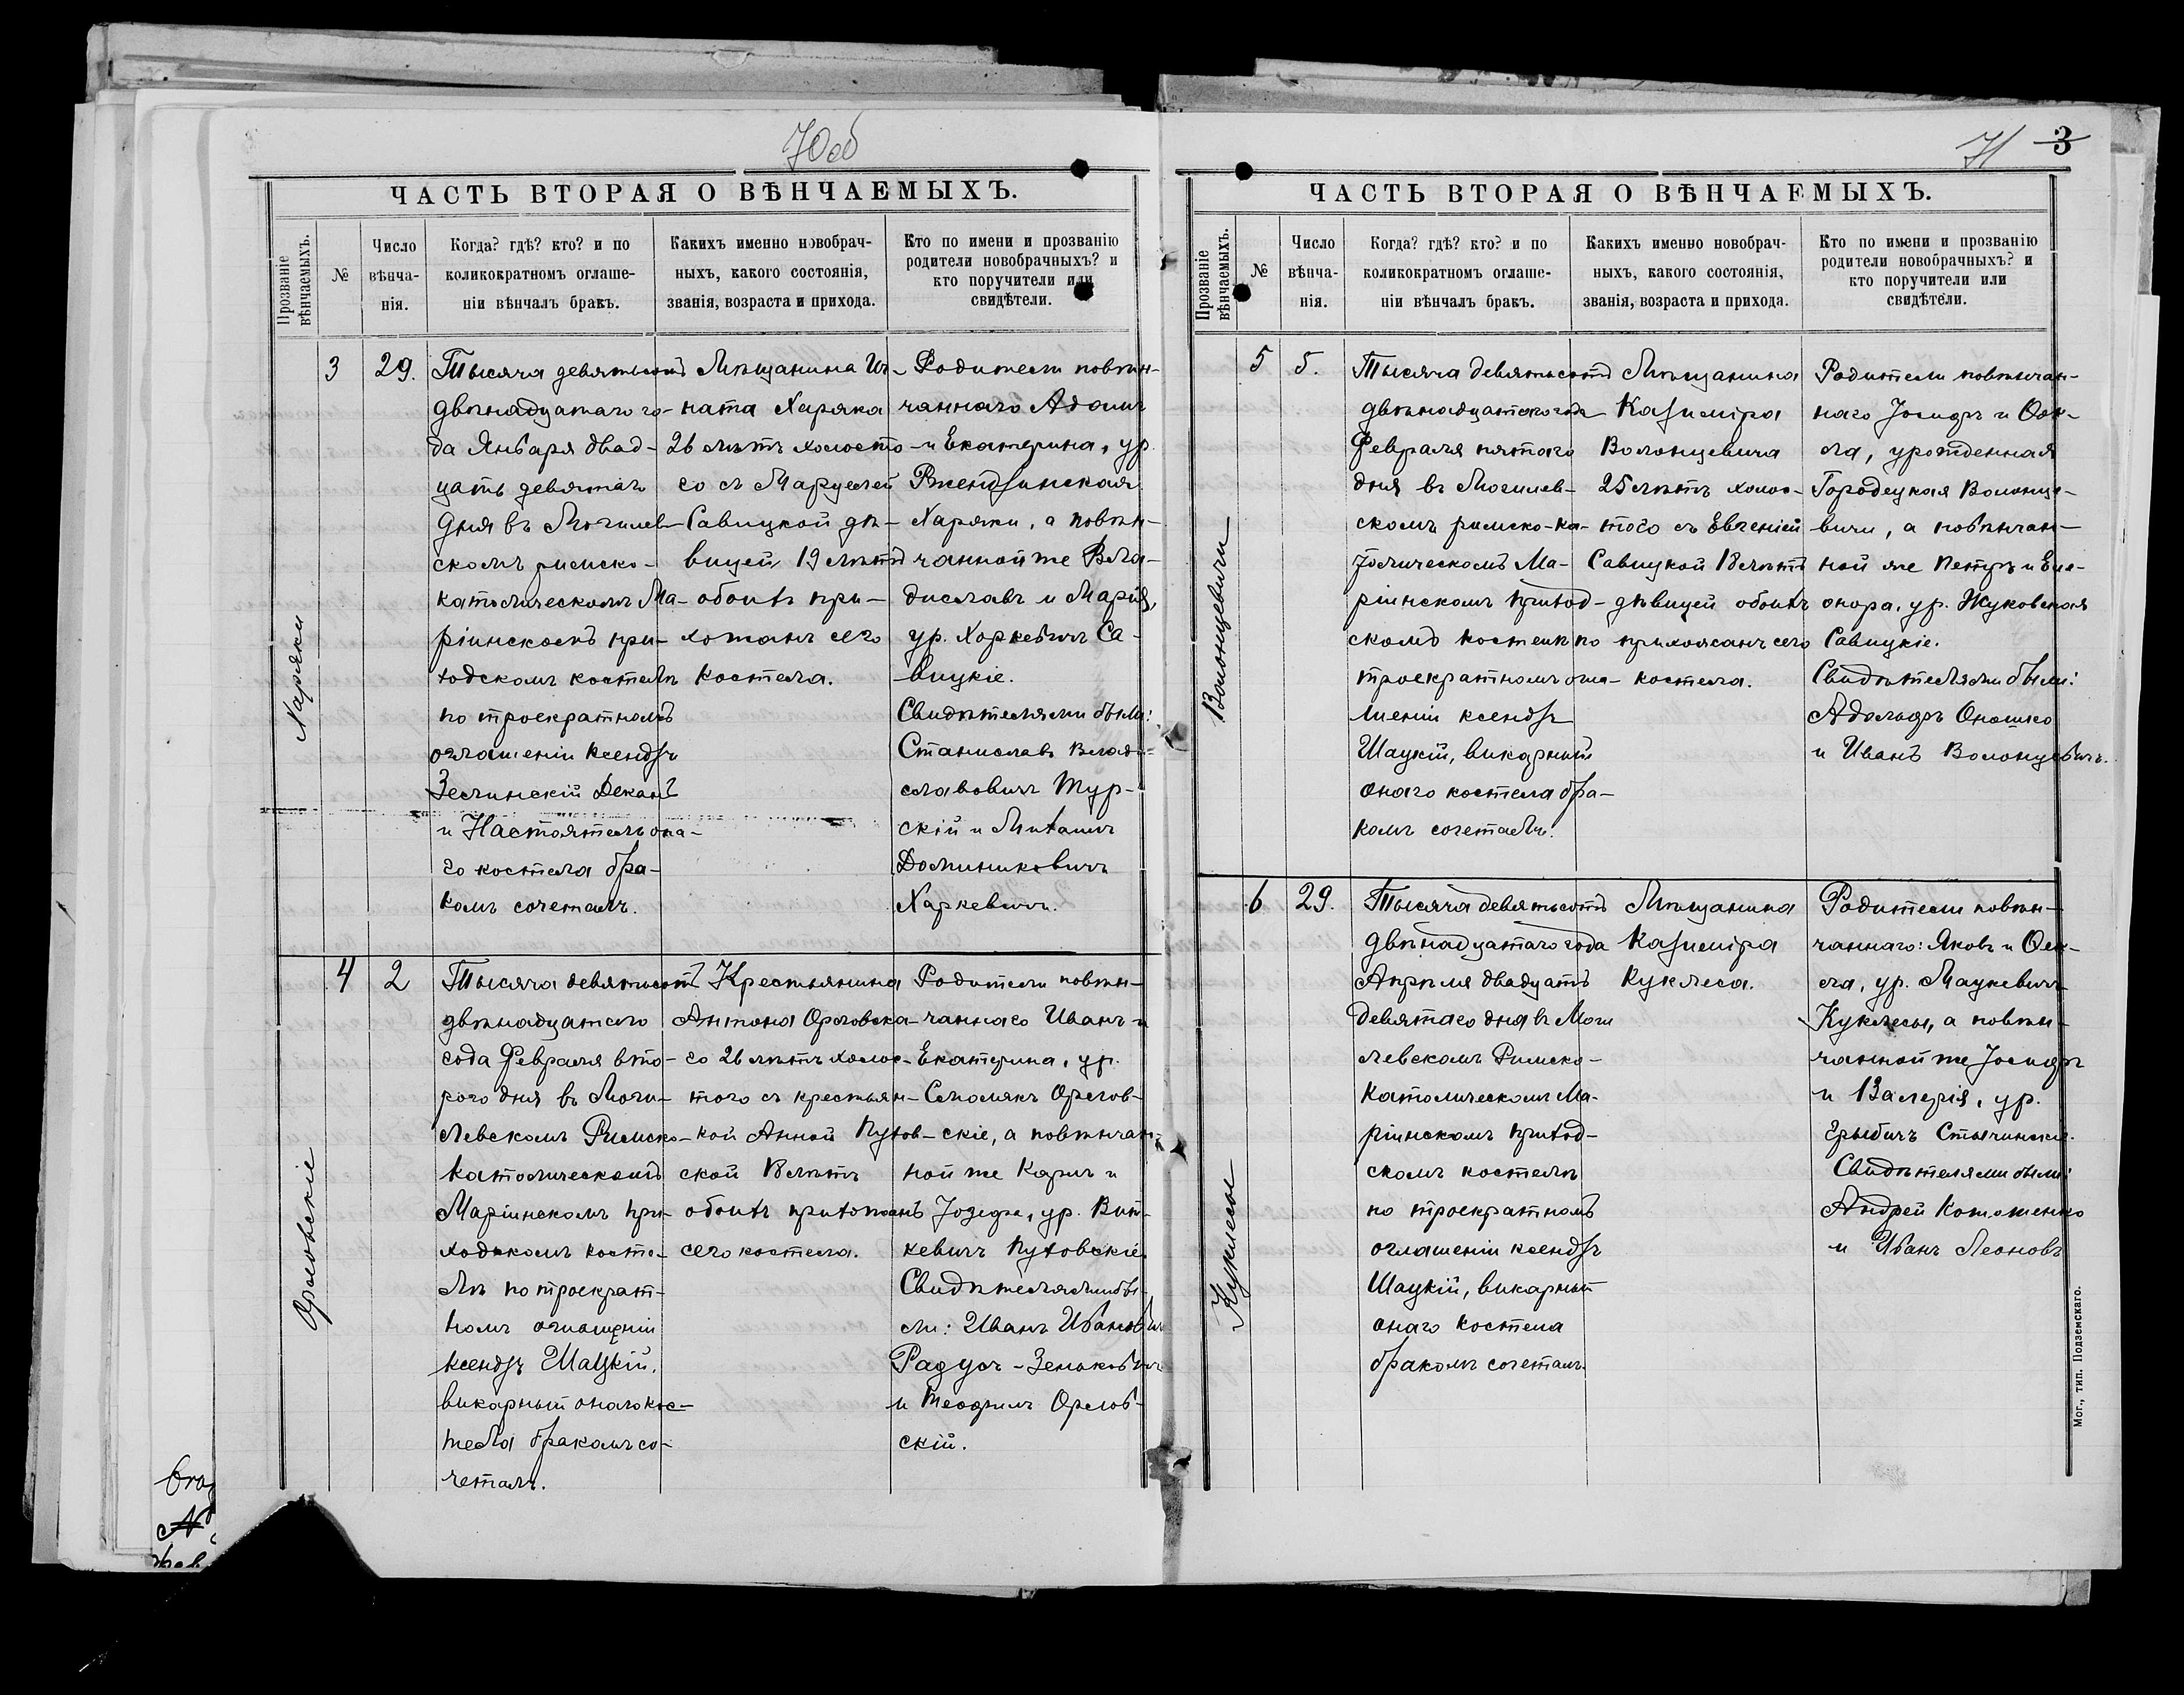 70об
ЧАСТЬ ВТОРАЯ О ВѢНЧАЕМЫХЪ.
Прозваніе вѣнчаемыхъ.
№
Число
вѣнча-
нія.
Когда? гдѣ? кто? и по
коликократномъ оглаше-
ніи вѣнчалъ бракъ.
Какихъ именно новобрач-
ныхъ, какого состоянія,
званія, возраста и прихода.
Кто по имени и прозванію
родители новобрачныхъ? и
кто поручители или
свидѣтели.
Харяки
3
29.
Тысяча девятьсотъ
двѣнадцатаго го-
да Января двад-
цать девятаго
дня въ Могилев-
скомъ римско-
католическомъ Ма-
ріинскомъ при-
ходскомъ костелѣ
по троекратномъ
оглашеніи ксендзъ
Зелинскій Деканъ
и Настоятель она-
го костела бра-
комъ сочеталъ.
Мѣщанина Иг-
ната Харяка
26 лѣтъ холосто-
го съ Марцелей
Савицкой дѣ-
вицей 19 лѣтъ
обоихъ при-
хожанъ сего
костела.
Родители повѣн-
чаннаго Адамъ
и Екатерина, ур.
Ржендзинская
Харяки, а повѣн-
чанной же Вла-
диславъ и Марія,
ур. Харкевичъ Са-
вицкіе.
Свидѣтелями были:
Станиславъ Влади-
славовичъ Тур-
скій и Михаилъ
Доминиковичъ
Харкевичъ.
Орловскіе
4
2
Тысяча девятьсотъ
двѣнадцатаго
года Февраля вто-
рого дня въ Моги-
левскомъ Римско-
католическомъ
Маріинскомъ при-
ходскомъ косте-
лѣ по троекрат-
номъ оглашеніи
ксендзъ Шацкій,
викарный онаго кос-
тела бракомъ со-
четалъ.
Крестьянина
Антона Орловска-
го 26 лѣтъ холос-
того съ крестьян-
кой Анной Путов-
ской 18 лѣтъ
обоихъ прихожанъ
сего костела.
Родители повѣн-
чаннаго Иванъ и
Екатерина, ур.
Семолякъ Орлов-
скіе, а повѣнчан-
ной же Карлъ и
Јозефа, ур. Вит-
кевичъ Путовскіе.
Свидѣтелями бы-
ли: Иванъ Ивановичъ
Радусъ-Зеньковичъ
и Теофилъ Орлов-
скій.
71 3
ЧАСТЬ ВТОРАЯ О ВѢНЧАЕМЫХЪ.
Прозваніе вѣнчаемыхъ.
№
Число
вѣнча-
нія.
Когда? гдѣ? кто? и по
коликократномъ оглаше-
ніи вѣнчалъ бракъ.
Какихъ именно новобрач-
ныхъ, какого состоянія,
званія, возраста и прихода.
Кто по имени и прозванію
родители новобрачныхъ? и
кто поручители или
свидѣтели.
Волонцевичи
5
5.
Тысяча девятьсотъ
двѣнадцатаго года
Февраля пятаго
дня въ Могилев-
скомъ римско-ка-
толическомъ Ма-
ріинскомъ приход-
скомъ костелѣ по
троекратномъ огла-
шеніи ксендзъ
Шацкій, викарный
онаго костела бра-
комъ сочеталъ.
Мѣщанина
Казиміра
Волонцевича
25 лѣтъ холос-
того съ Евгеніей
Савицкой 18 лѣтъ
дѣвицей обоихъ
прихожанъ сего
костела.
Родители повѣнчан-
наго Јосифъ и Фек-
ла, урожденная
Городецкая Волонце-
вичи, а повѣнчан-
ной же Петръ и Еле-
онора, ур. Жуковская
Савицкіе.
Свидѣтелями были:
Адольфъ Оношко
и Иванъ Волонцевичъ.
Куклесы
6
29.
Тысяча девятьсотъ
двѣнадцатаго года
Апрѣля двадцать
девятаго дня въ Моги
левскомъ Римско-
католическомъ Ма-
ріинскомъ приход-
скомъ костелѣ
по троекратномъ
оглашеніи ксендзъ
Шацкій, викарный
онаго костела
бракомъ сочеталъ.
Мѣщанина
Казиміра
Куклеса.
Родители повѣн-
чаннаго: Яковъ и Фек-
ла, ур. Мацкевичъ
Куклесы, а повѣн-
чанной же Јосифъ
и Валерія, ур.
Свидѣтелями были:
Андрей
и Иванъ Леоновъ
Мог., тип. Подземскаго.